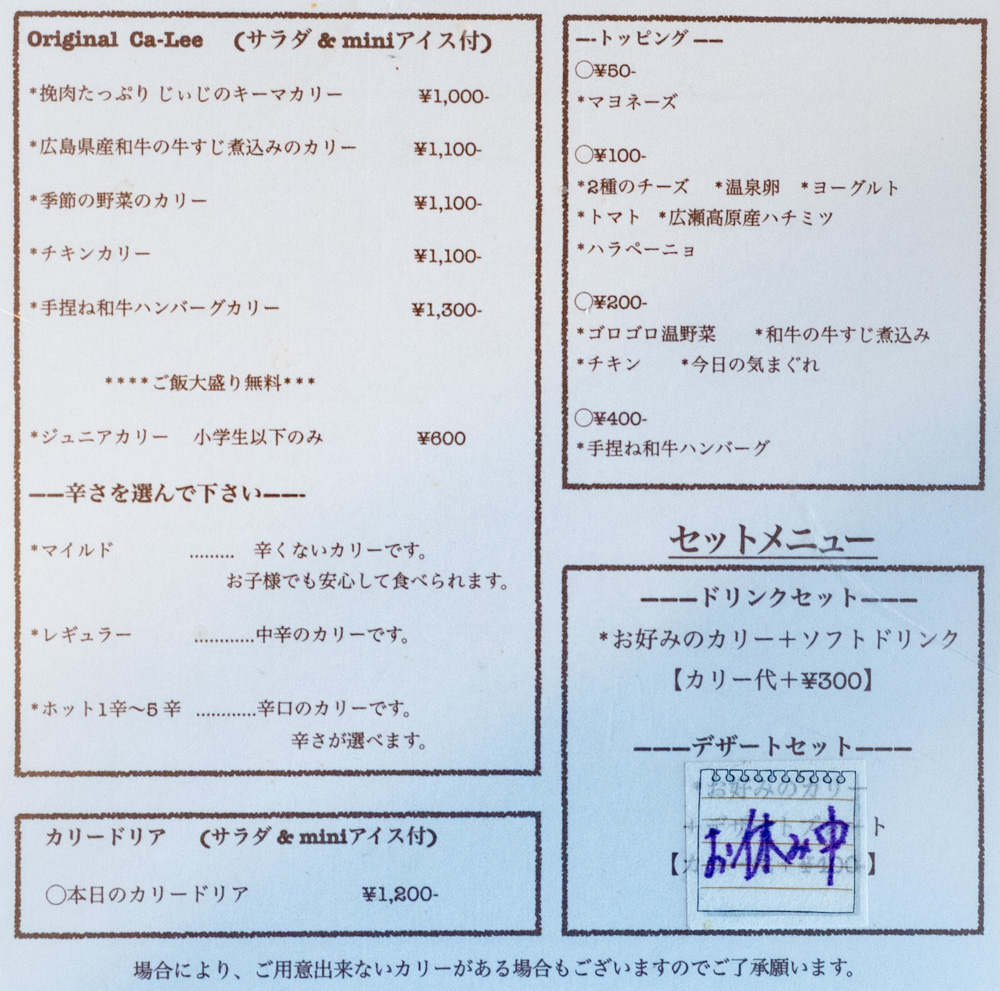 Original Ca-Lee (サラダ & miniアイス付)
*挽肉たっぷり じぃじのキーマカリー ¥1,000-
*広島県産和牛の牛すじ煮込みのカリー ¥1,100-
*季節の野菜のカリー ¥1,100-
*チキンカリー ¥1,100-
*手捏ね和牛ハンバーグカリー ¥1,300-
****ご飯大盛り無料***
*ジュニアカリー 小学生以下のみ ¥600
——辛さを選んで下さい——-
*マイルド ......... 辛くないカリーです。
お子様でも安心して食べられます。
*レギュラー ............中辛のカリーです。
*ホット1辛〜5 辛 ............辛口のカリーです。
辛さが選べます。
カリードリア (サラダ & miniアイス付)
○本日のカリードリア ¥1,200-
—-トッピング——
○¥50-
*マヨネーズ
○¥100-
*2種のチーズ *温泉卵 *ヨーグルト
*トマト *広瀬高原産ハチミツ
*ハラペーニョ
○¥200-
*ゴロゴロ温野菜 *和牛の牛すじ煮込み
*チキン *今日の気まぐれ
○¥400-
*手捏ね和牛ハンバーグ
セットメニュー
———ドリンクセット———
*お好みのカリー＋ソフトドリンク
【カリー代＋¥300】
———デザートセット———
*お好みのカリー
ト
【カ ＋¥400】
お休み中
場合により、ご用意出来ないカリーがある場合もございますのでご了承願います。